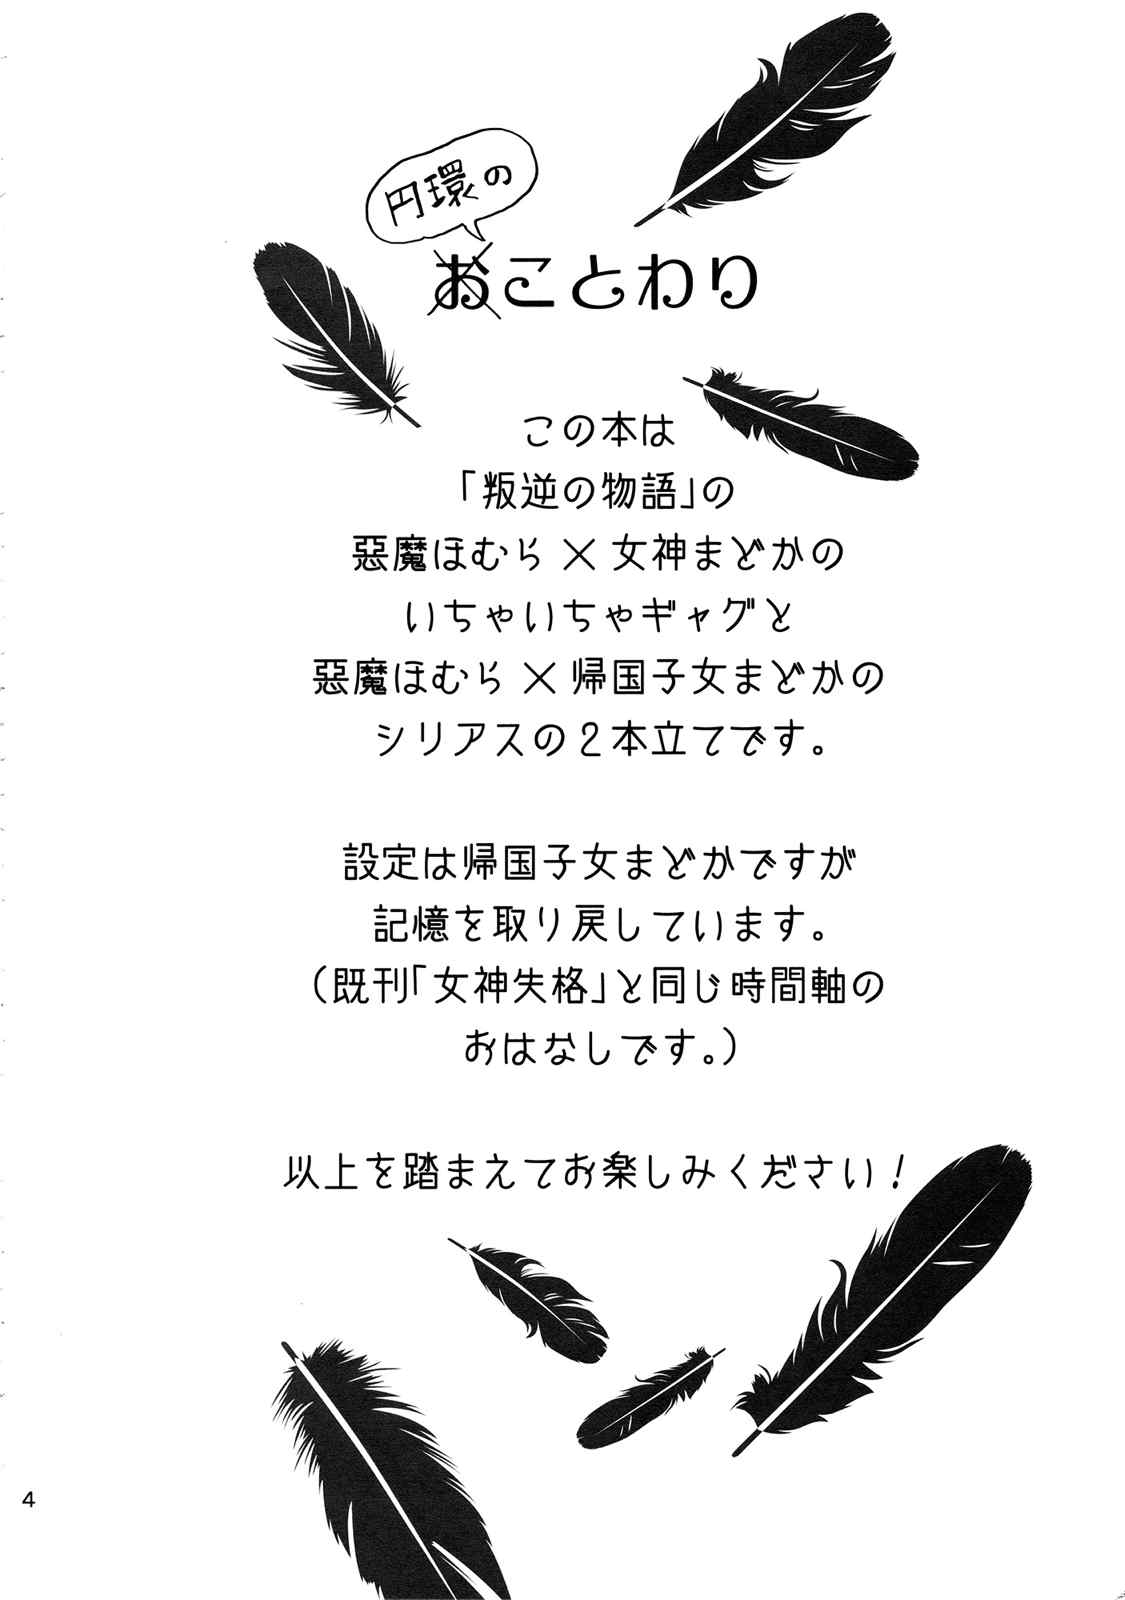 円環の
おことわり
この本は
「叛逆の物語」の
惡魔ほむら×女神まどかの
いちゃいちゃギャグと
惡魔ほむら×帰国子女まどかの
シリアスの2本立てです。
設定は帰国子女まどかですが
記憶を取り戻しています。
(既刊「女神失格」と同じ時間軸の
おはなしです。)
以上を踏まえてお楽しみください!
4